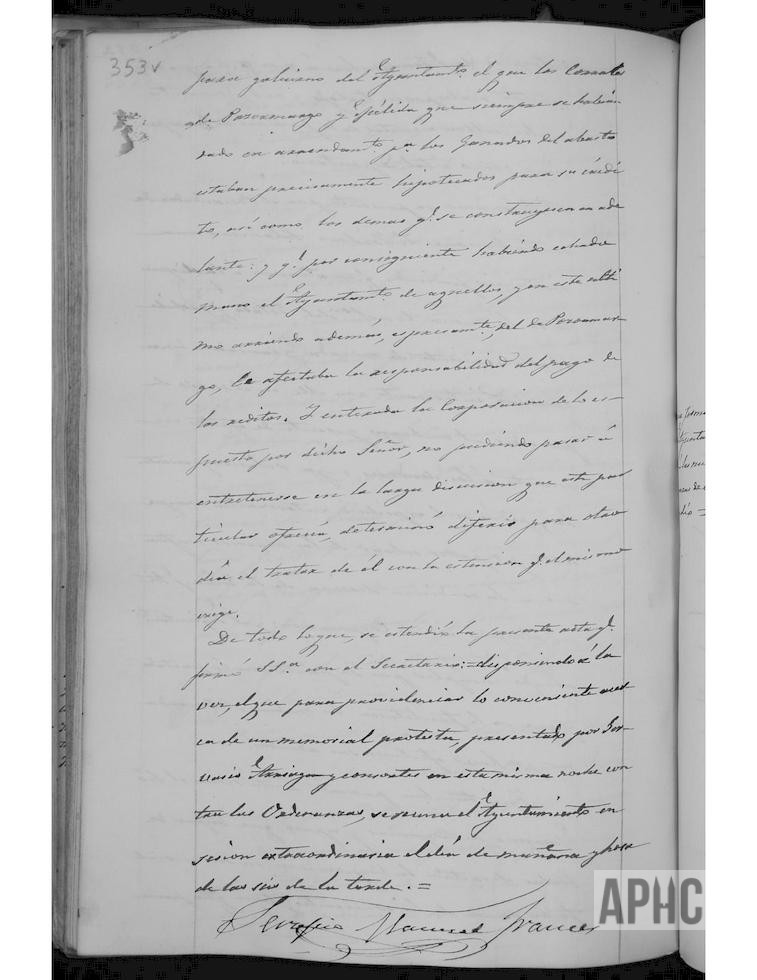 353v
para gobierno del Ayuntamto el que los Corrales
de Pozoamargo y Epélida que siempre se habian
dado en arrendamto pa los Ganados del abasto
estaban precisamente hipotecados para su crédi
to, así como los demas qe se construyesen en ade
lante: y qe por consiguiente habiendo echado
mano el Ayuntamto de aquellos, y en este ulti
mo arriendo además, espresamte del de Pozoamar
go, le afectaba la responsabilidad del pago de
los reditos. Y enterada la Corporacion de lo es-
puesto por dicho Señor, no pudiendo pasar á
entretenerse en la larga discusion que este par
ticular ofrecia, determinó diferir para otro
dia el tratar de él con la estension qe el mismo
exige.
De todo lo que, se estendió la presente acta qe
firmó S.Sa con el Secretario: = disponiendo á la
vez, el que para providenciar lo conveniente acer
ca de un memorial protesta, presentado por Ger-
vasio Arriaga y consortes en esta misma noche con
tra las Ordenanzas, se reuna el Ayuntamiento en
sesion extraordinaria el dia de mañana y hora
de las seis de la tarde. =
Serafin Manuel Frances
APHC